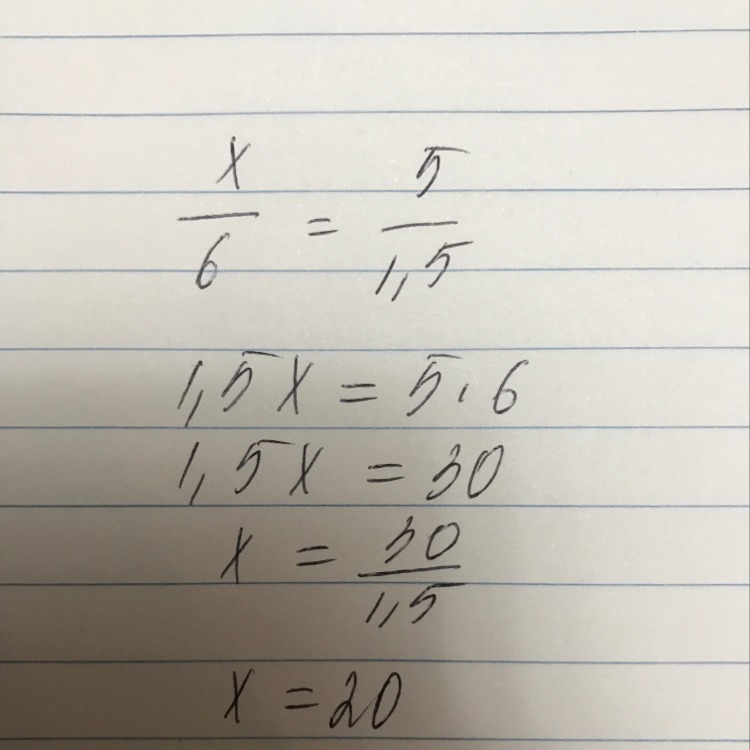 x/6 = 5/1,5
1,5x = 5·6
1,5x = 30
x = 30/1,5
x = 20